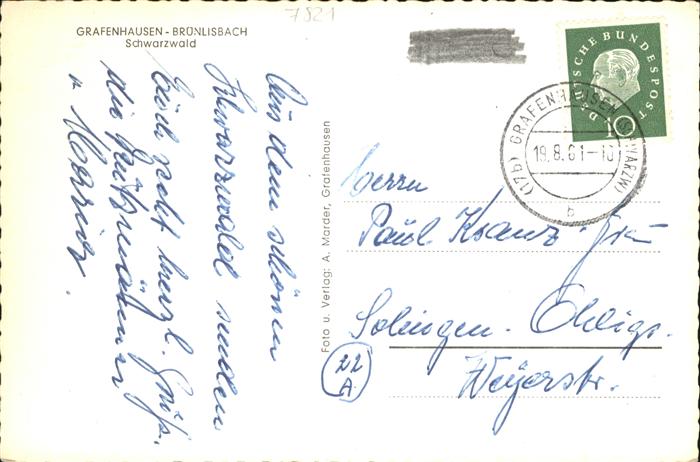 7821
GRAFENHAUSEN - BRÜNLISBACH
Schwarzwald
Aus dem schönen
Schwarzwald senden
Euch recht herzl. Grüße
die
u.
Foto u. Verlag: A. Marder, Grafenhausen
DEUTSCHE BUNDESPOST
10
(17b) GRAFENHAUSEN (SCHWARZW)
19.8.61-10
b
Herrn
Paul Kranz
Solingen-Ohligs.
Weyerstr.
22
A